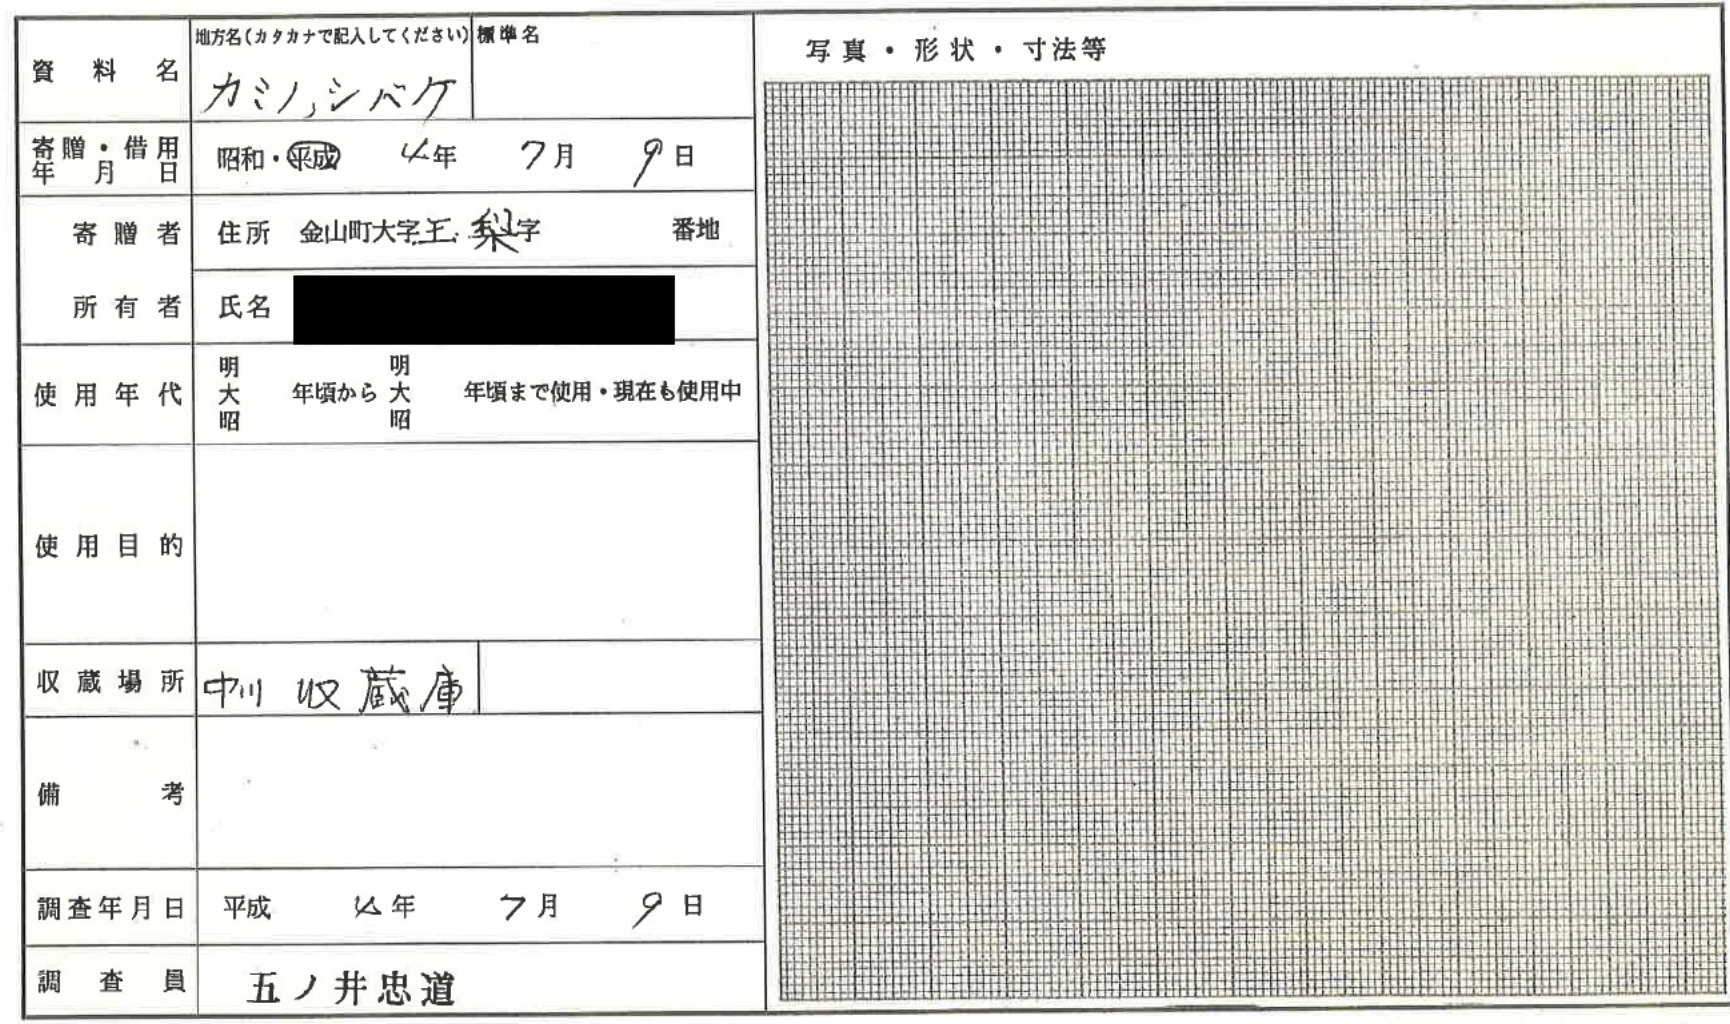 資料名
地方名(カタカナで記入してください)
標準名
カミノシバケ
写真・形状・寸法等
寄贈・借用
年月日
昭和・平成 4年 7月 9日
寄贈者
住所 金山町大字玉梨字 番地
所有者
氏名
使用年代
明 明
大 年頃から 大 年頃まで使用・現在も使用中
昭 昭
使用目的
収蔵場所
中川 収蔵庫
備考
調査年月日
平成 4年 7月 9日
調査員
五ノ井忠道